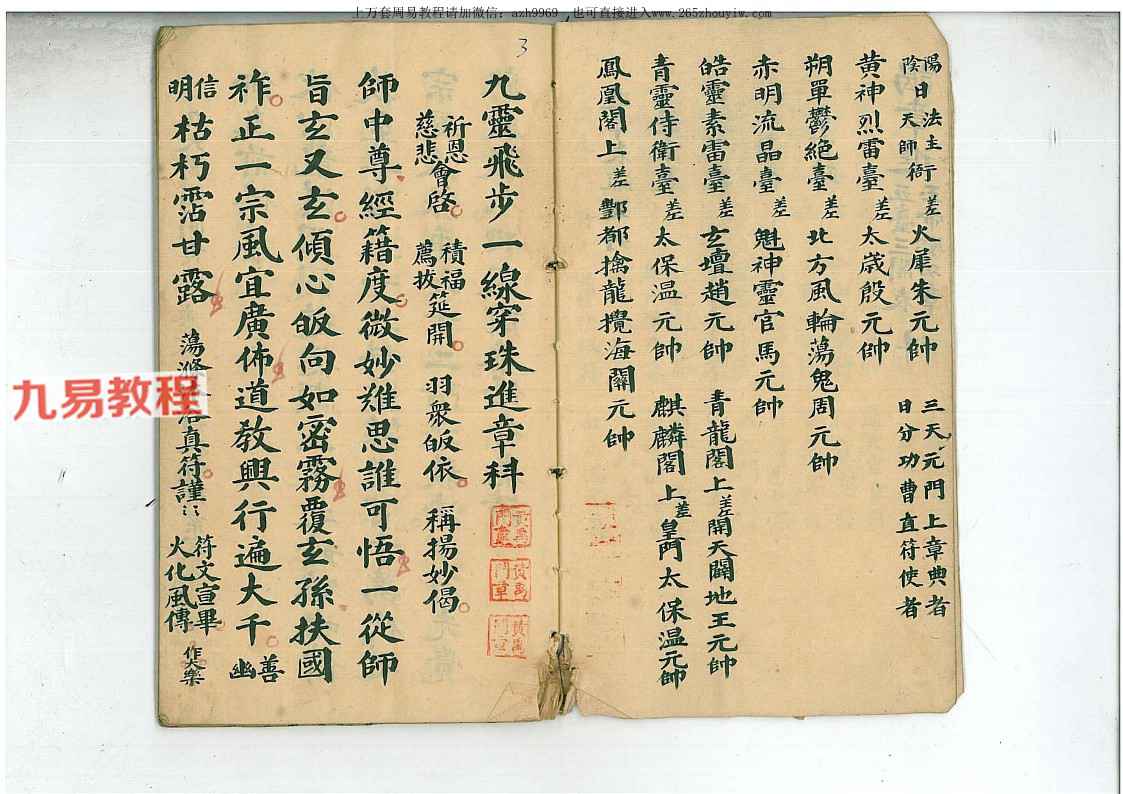 上万套周易教程请加微信：azh9969 也可直接进入www.265zhouyiw.com
陽日法主衙差火犀朱元帥 三天元門上章典者
陰天師 日分功曹直符使者
黃神烈雷臺差太歲殷元帥
朔單鬱絕臺差北方風輪蕩鬼周元帥
赤明流晶臺差魁神靈官馬元帥
皓靈素雷臺差玄壇趙元帥 青龍閣上差開天闢地王元帥
青靈侍衛臺差太保溫元帥 麒麟閣上差皇門太保溫元帥
鳳凰閣上差酆都擒龍攪海關元帥
3
九靈飛步一線穿珠進章科
祈恩慈悲會啓 積福薦拔筵開 羽衆皈依 稱揚妙偈
師中尊經籍度微妙難思誰可悟一從師
旨玄又玄傾心皈向如密霧覆玄孫扶國
祚正一宗風宜廣佈道教興行遍大千 善幽
信明枯朽霑甘露 蕩滌 真符謹 符文宣畢火化風傳 作大樂
九易教程